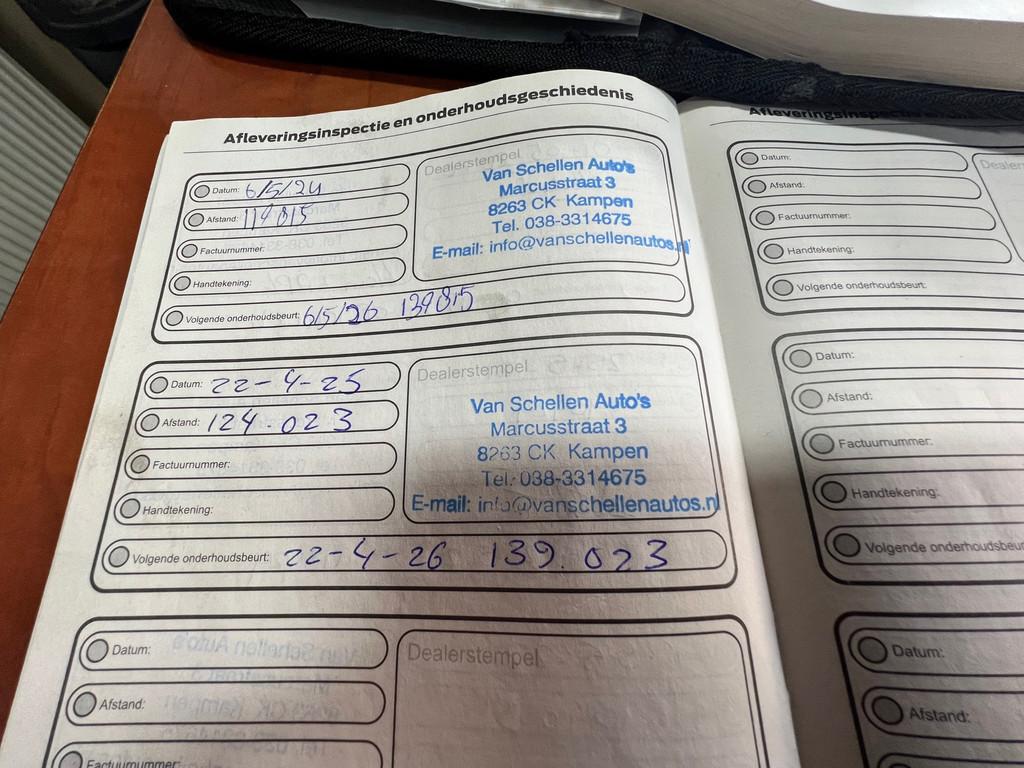 Afleveringsinspectie en onderhoudsgeschiedenis
Datum: 6/5/24
Afstand: 119815
Factuurnummer:
Handtekening:
Volgende onderhoudsbeurt: 6/5/26 139815
Dealerstempel
Van Schellen Auto's
Marcusstraat 3
8263 CK Kampen
Tel. 038-3314675
E-mail: info@vanschellenautos.nl
Datum: 22-4-25
Afstand: 124.023
Factuurnummer:
Handtekening:
Volgende onderhoudsbeurt: 22-4-26 139.023
Dealerstempel
Van Schellen Auto's
Marcusstraat 3
8263 CK Kampen
Tel. 038-3314675
E-mail: info@vanschellenautos.nl
Datum:
Afstand:
Factuurnummer:
Dealerstempel
Afleveringsinspectie
Datum:
Afstand:
Factuurnummer:
Handtekening:
Volgende onderhoudsbeurt:
Datum:
Afstand:
Factuurnummer:
Handtekening:
Volgende
Datum:
Afstand: